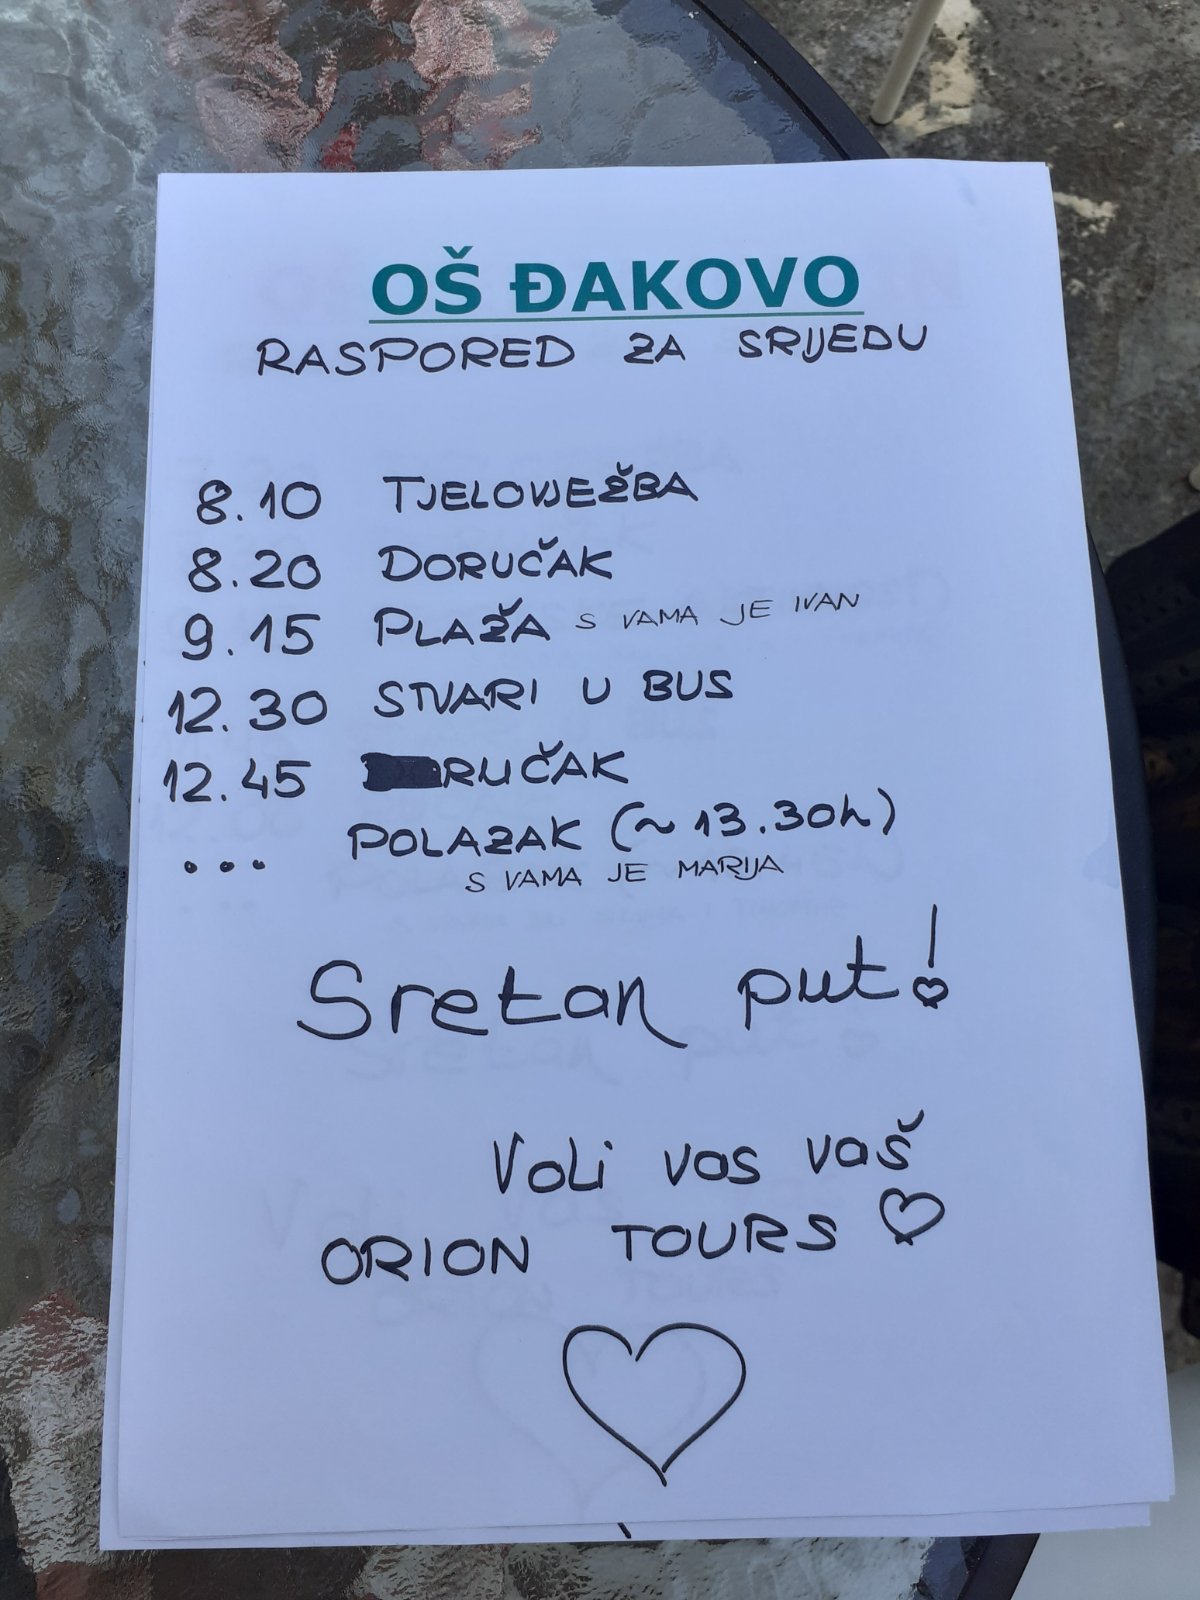 OŠ ĐAKOVO
RASPORED ZA SRIJEDU
8.10 TJELOVJEŽBA
8.20 DORUČAK
9.15 PLAŽA S VAMA JE IVAN
12.30 STVARI U BUS
12.45 RUČAK
... POLAZAK (~ 13.30h)
S VAMA JE MARIJA
Sretan put!
Voli vas vaš
ORION TOURS